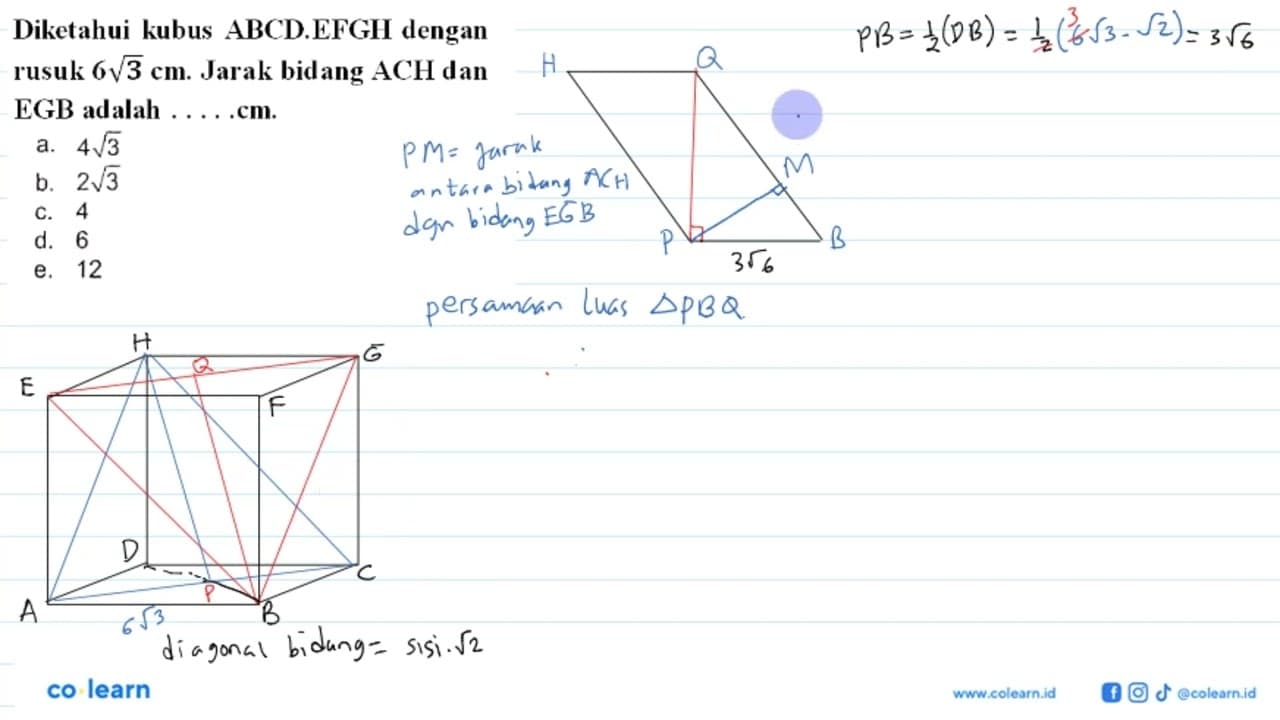 Diketahui kubus ABCD.EFGH dengan
rusuk 6√3 cm. Jarak bidang ACH dan
EGB adalah . . . . .cm.
a. 4√3
b. 2√3
c. 4
d. 6
e. 12
PB = ½(DB) = ½(6√3 - √2) = 3√6
3
H
Q
PM = Jarak
antara bidang ACH
dgn bidang EGB
M
P
B
3√6
persamaan luas △PBQ
H
Q
G
E
F
D
C
P
A
B
6√3
diagonal bidang = sisi.√2
co learn
www.colearn.id
@colearn.id